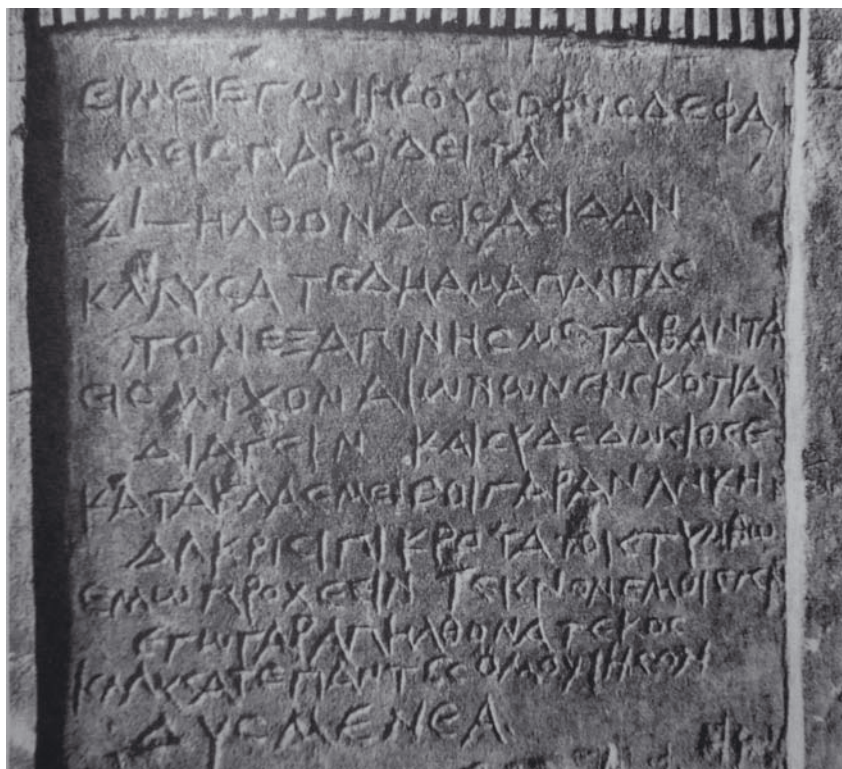 ΕΙΜΕΙΕΓΩΙΗϹΟΥϹΟΦΥϹΔΕΦΑ
ΜΕΙϹΠΑΡΟΔΕΙΤΑ
ΞL ΗΛΘΟΝΔΕΙϹΑΕΙΔΑΝ
ΚΛΑΥϹΑΤΕΔΗΑΜΑΠΑΝΤΑϹ
ΤΟΝΕΞΑΠΙΝΗϹΜΕΤΑΒΑΝΤΑ
ΕΙϹΜΥΧΟΝΑΙΩΝΩΝΕΝϹΚΟΤΙΑ
ΔΙΑΓΕΙΝ ΚΑΙϹΥΔΕΔΩϹΙΘΕΕ
ΚΑΤΑΚΛΑΕΜΕϹΟΙΓΑΡΑΝΑΝΚΗ
ΔΑΚΡΙϹΙΠΙΚΡΟΤΑΤΟΙϹΤΥΜΒΩ
ΕΜΩΠΡΟΧΕΕΙΝ ΤΕΚΝΟΝΕΜΟΙ
ΕΓΩΓΑΡΑΠΗΛΘΟΝΑΤΕΚΟϹ
ΚΛΑΥϹΑΤΕΠΑΝΤΕϹΟΜΟΥΙΗϹΟΝ
ΔΥϹΜΕΝΕΑ